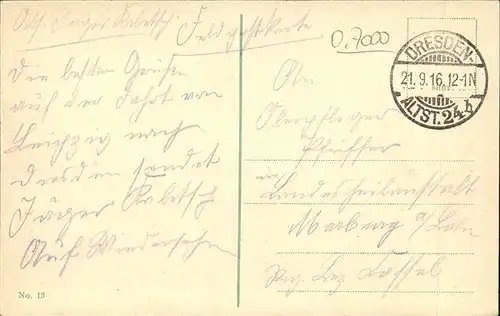 Abs. Jäger Arbetsch.
Feldpostkarte
0.7000
DRESDEN-
21.9.16.12-1N
ALTST. 24 b
Die besten Grüße
auf der Fahrt von
Leipzig nach
Dresden sendet
Jäger Arbetsch
Auf Wiedersehn
An
Oberpfleger
Pfeiffer
Landesheilanstalt
Marburg a/Lahn
Bez. Cassel
No. 13